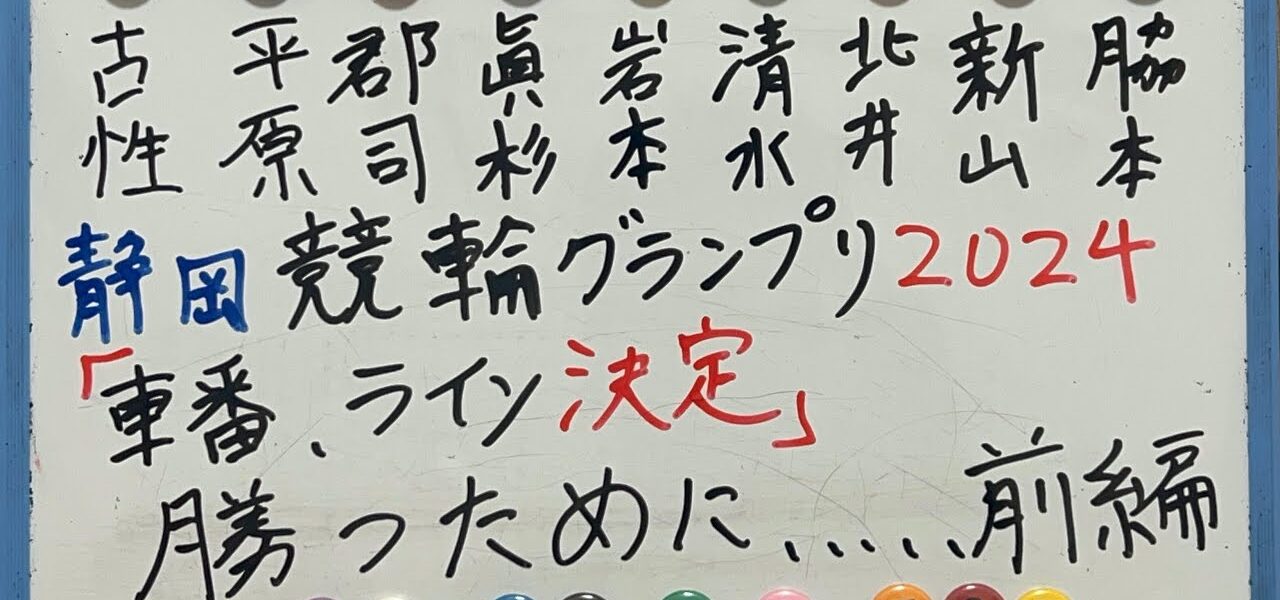 古性 平原 郡司 眞杉 岩本 清水 北井 新山 脇本
静岡競輪グランプリ2024
「車番、ライン決定」
勝つために、、、、、前編